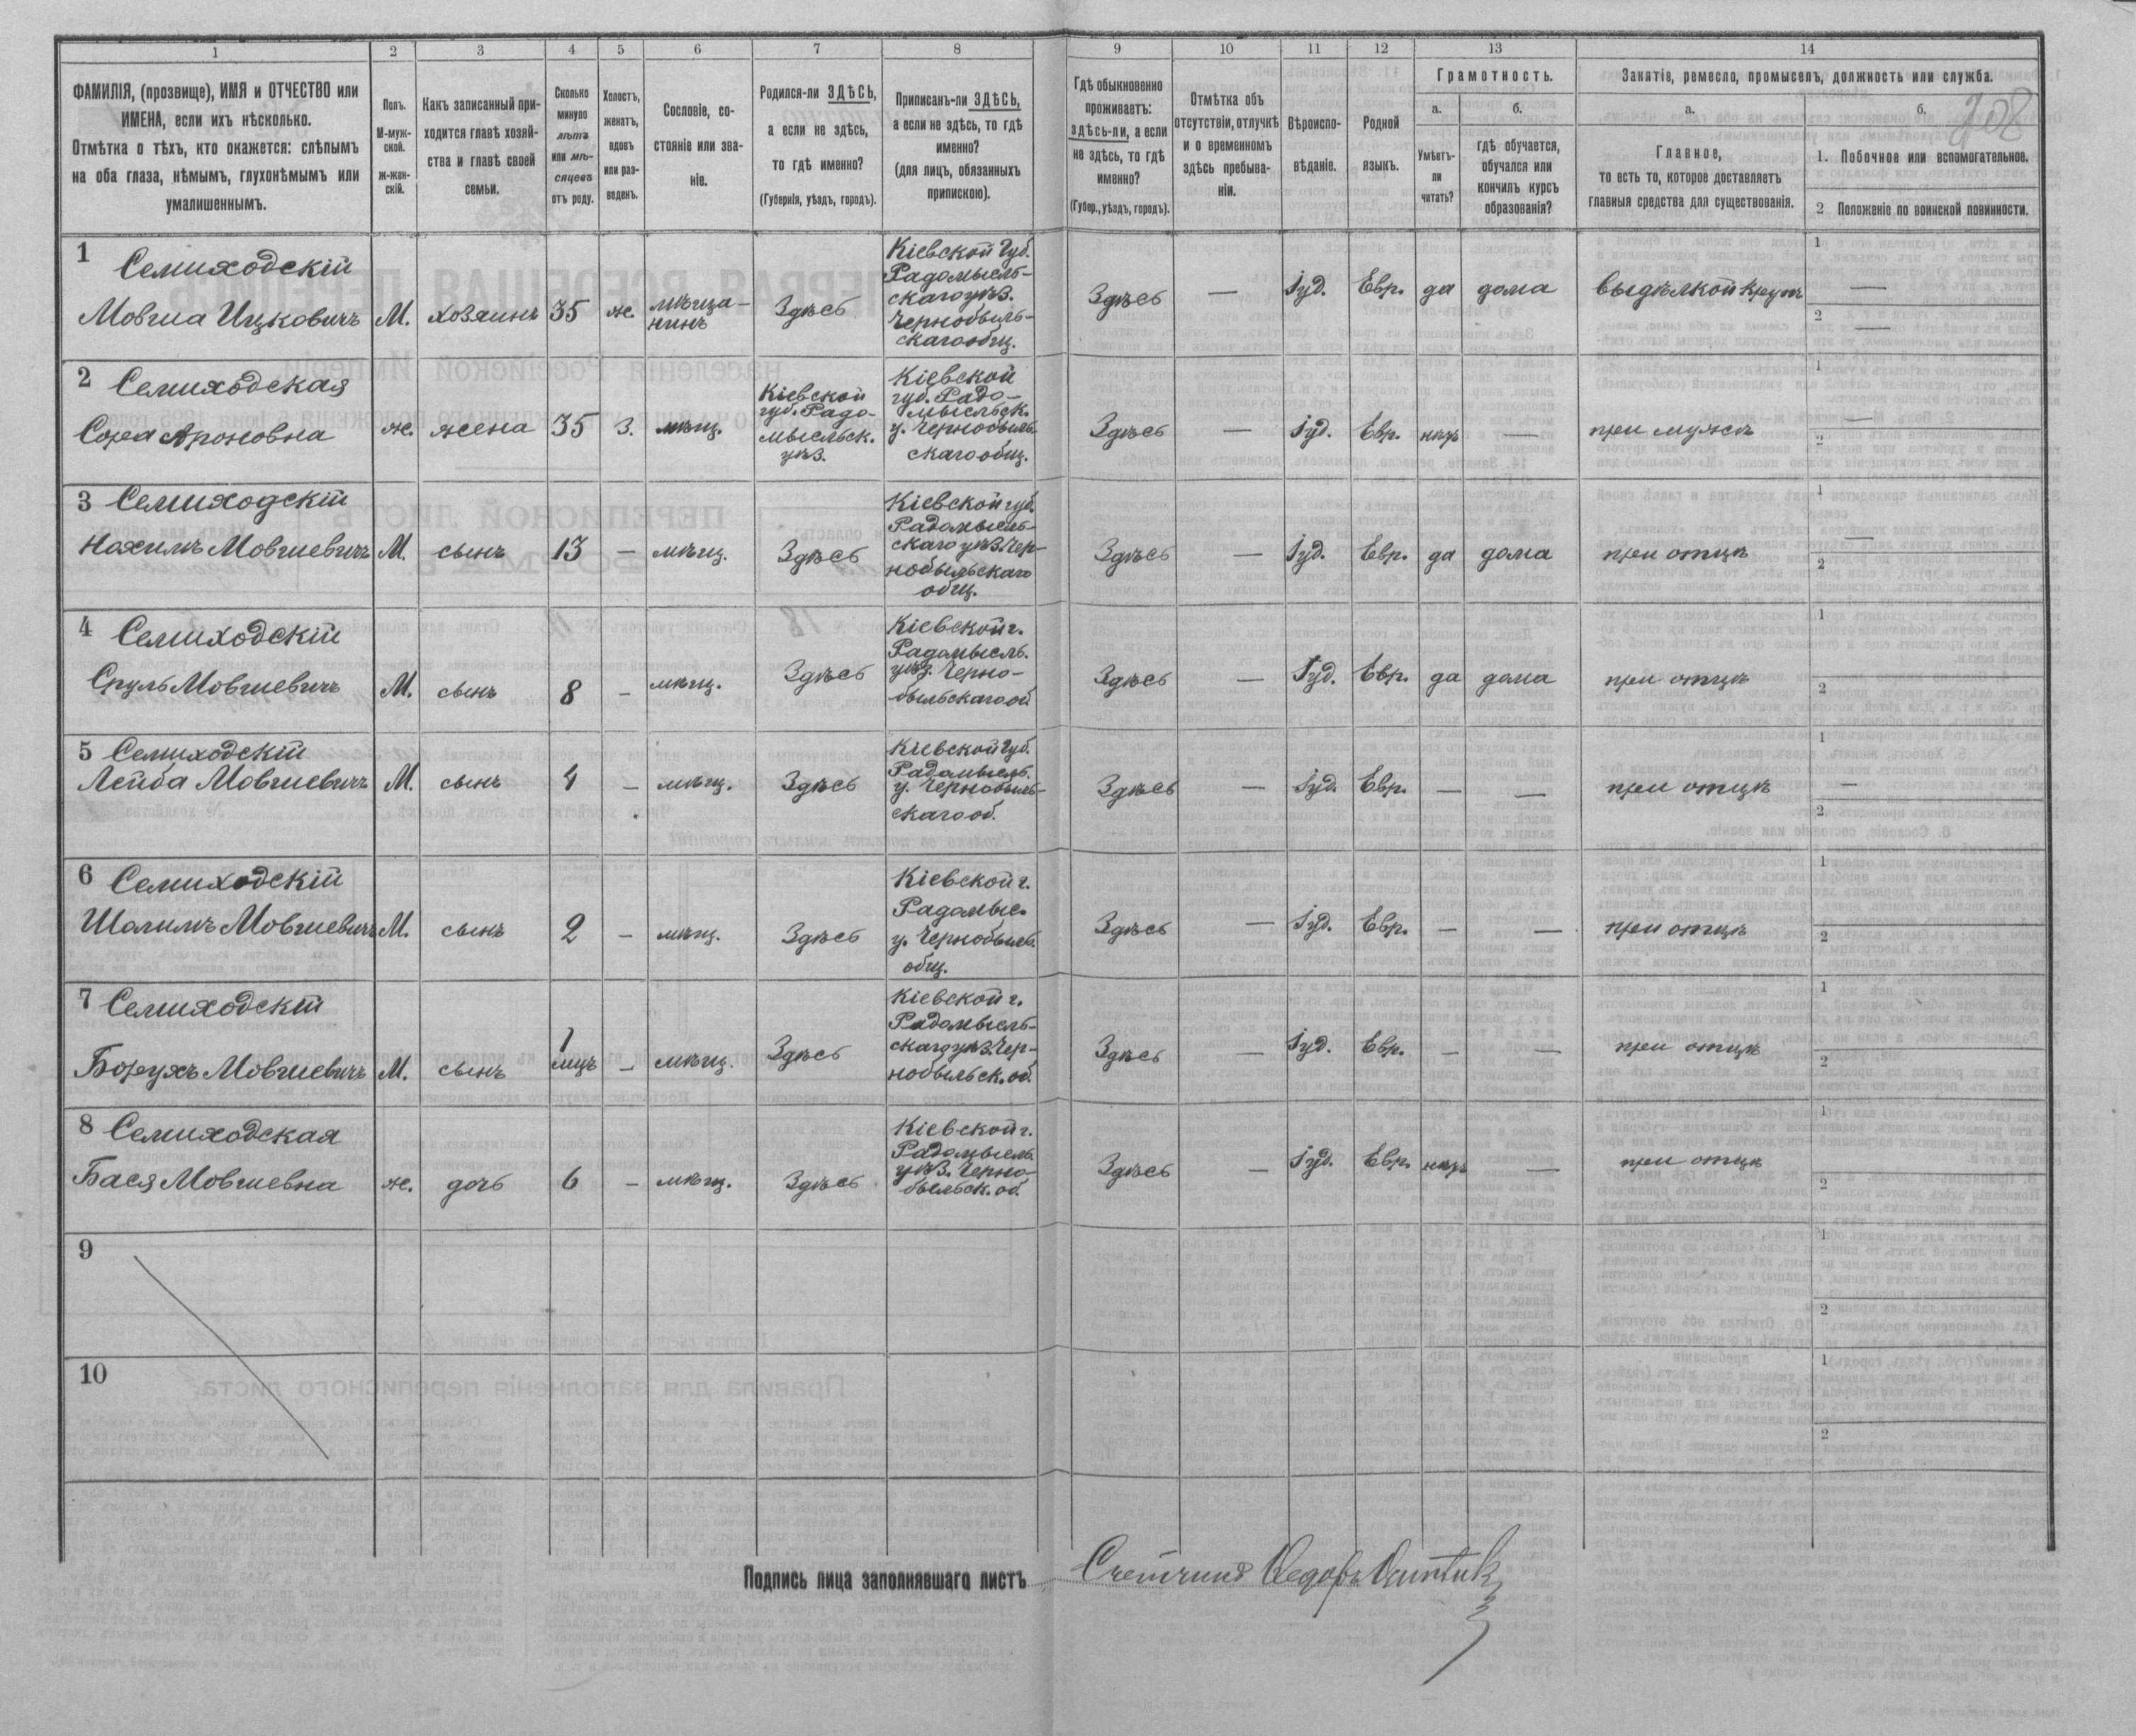 1 2 3 4 5 6 7 8 9 10 11 12 13 14
ФАМИЛІЯ, (прозвище), ИМЯ и ОТЧЕСТВО или
ИМЕНА, если ихъ нѣсколько.
Отмѣтка о тѣхъ, кто окажется: слѣпымъ
на оба глаза, нѣмымъ, глухонѣмымъ или
умалишеннымъ.
Полъ.
М-муж-
ской.
ж-жен-
скій.
Какъ записанный при-
ходится главѣ хозяй-
ства и главѣ своей
семьи.
Сколько
минуло
лѣтъ
или мѣ-
сяцевъ
отъ роду.
Холостъ,
женатъ,
вдовъ
или раз-
веденъ.
Сословіе, со-
стояніе или зва-
ніе.
Родился-ли ЗДѢСЬ,
а если не здѣсь,
то гдѣ именно?
(Губернія, уѣздъ, городъ).
Приписанъ-ли ЗДѢСЬ,
а если не здѣсь, то гдѣ
именно?
(для лицъ, обязанныхъ
припискою).
Гдѣ обыкновенно
проживаетъ:
здѣсь-ли, а если
не здѣсь, то гдѣ
именно?
(Губер., уѣздъ, городъ).
Отмѣтка объ
отсутствіи, отлучкѣ
и о временномъ
здѣсь пребыва-
ніи.
Вѣроиспо-
вѣданіе.
Родной
языкъ.
Грамотность.
а.
Умѣетъ-
ли
читать?
б.
гдѣ обучается,
обучался или
кончилъ курсъ
образованія?
Занятіе, ремесло, промыселъ, должность или служба.
а.
Главное,
то есть то, которое доставляетъ
главныя средства для существованія.
б.
208
1. Побочное или вспомогательное.
2 Положеніе по воинской повинности.
1 Семиходскій
Мовша Ицковичъ
М.
хозяинъ
35
ж.
мѣща-
нинъ
Здѣсь
Кіевской Губ.
Радомысль-
скаго уѣз.
Чернобыль-
скаго общ.
Здѣсь
—
Іуд.
Евр.
да
дома
выдѣлкой крупъ
1 —
2 —
2 Семиходская
Сора Ароновна
ж.
жена
35
З.
мѣщ.
Кіевской
губ. Радо-
мысльск.
уѣз.
Кіевской
губ. Радо-
мысльск.
у. Чернобыль-
скаго общ.
Здѣсь
—
Іуд.
Евр.
нѣтъ
—
при мужѣ
1
—
2
3 Семиходскій
Нахимъ Мовшевичъ
М.
сынъ
13
—
мѣщ.
Здѣсь
Кіевской губ.
Радомысль-
скаго уѣз. Чер-
нобыльскаго
общ.
Здѣсь
—
Іуд.
Евр.
да
дома
при отцѣ
1
—
2
4 Семиходскій
Сруль Мовшевичъ
М.
сынъ
8
—
мѣщ.
Здѣсь
Кіевской г.
Радомысль.
уѣз. Черно-
быльскаго об
Здѣсь
—
Іуд.
Евр.
да
дома
при отцѣ
1
2
5 Семиходскій
Лейба Мовшевичъ
М.
сынъ
4
—
мѣщ.
Здѣсь
Кіевской Губ.
Радомысль.
у. Чернобыль-
скаго об.
Здѣсь
—
Іуд.
Евр.
—
—
при отцѣ
1
—
2
6 Семиходскій
Шолимъ Мовшевичъ
М.
сынъ
2
—
мѣщ.
Здѣсь
Кіевской г.
Радомыс.
у. Чернобыль.
общ.
Здѣсь
—
Іуд.
Евр.
—
—
при отцѣ
1
2
7 Семиходскій
Борухъ Мовшевичъ
М.
сынъ
1
мцъ
—
мѣщ.
Здѣсь
Кіевской г.
Радомысль-
скаго уѣз. Чер-
нобыльск. об.
Здѣсь
—
Іуд.
Евр.
—
—
при отцѣ
1
2
8 Семиходская
Бася Мовшевна
ж.
дочь
6
—
мѣщ.
Здѣсь
Кіевской г.
Радомысль
уѣз. Черно-
быльск. об.
Здѣсь
—
Іуд.
Евр.
нѣтъ
—
при отцѣ
1
2
9
1
2
10
1
2
Подпись лица заполнявшаго листъ
Счетчикъ